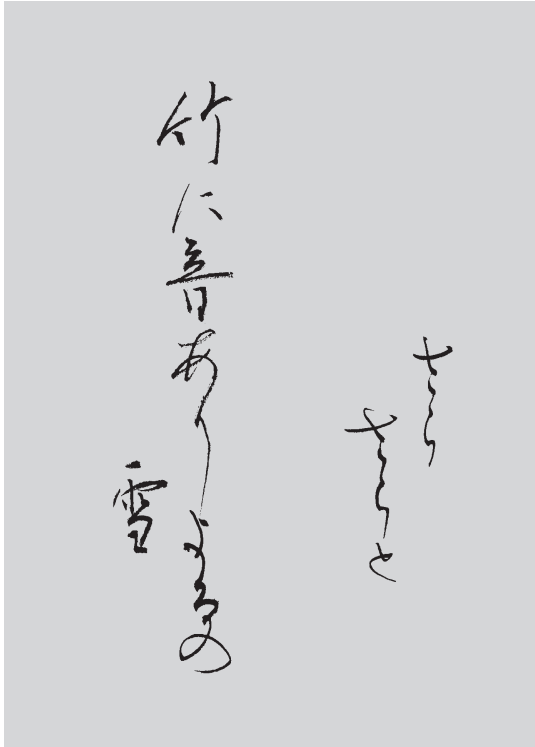 さら
さらと
竹に音ありよるの
雪